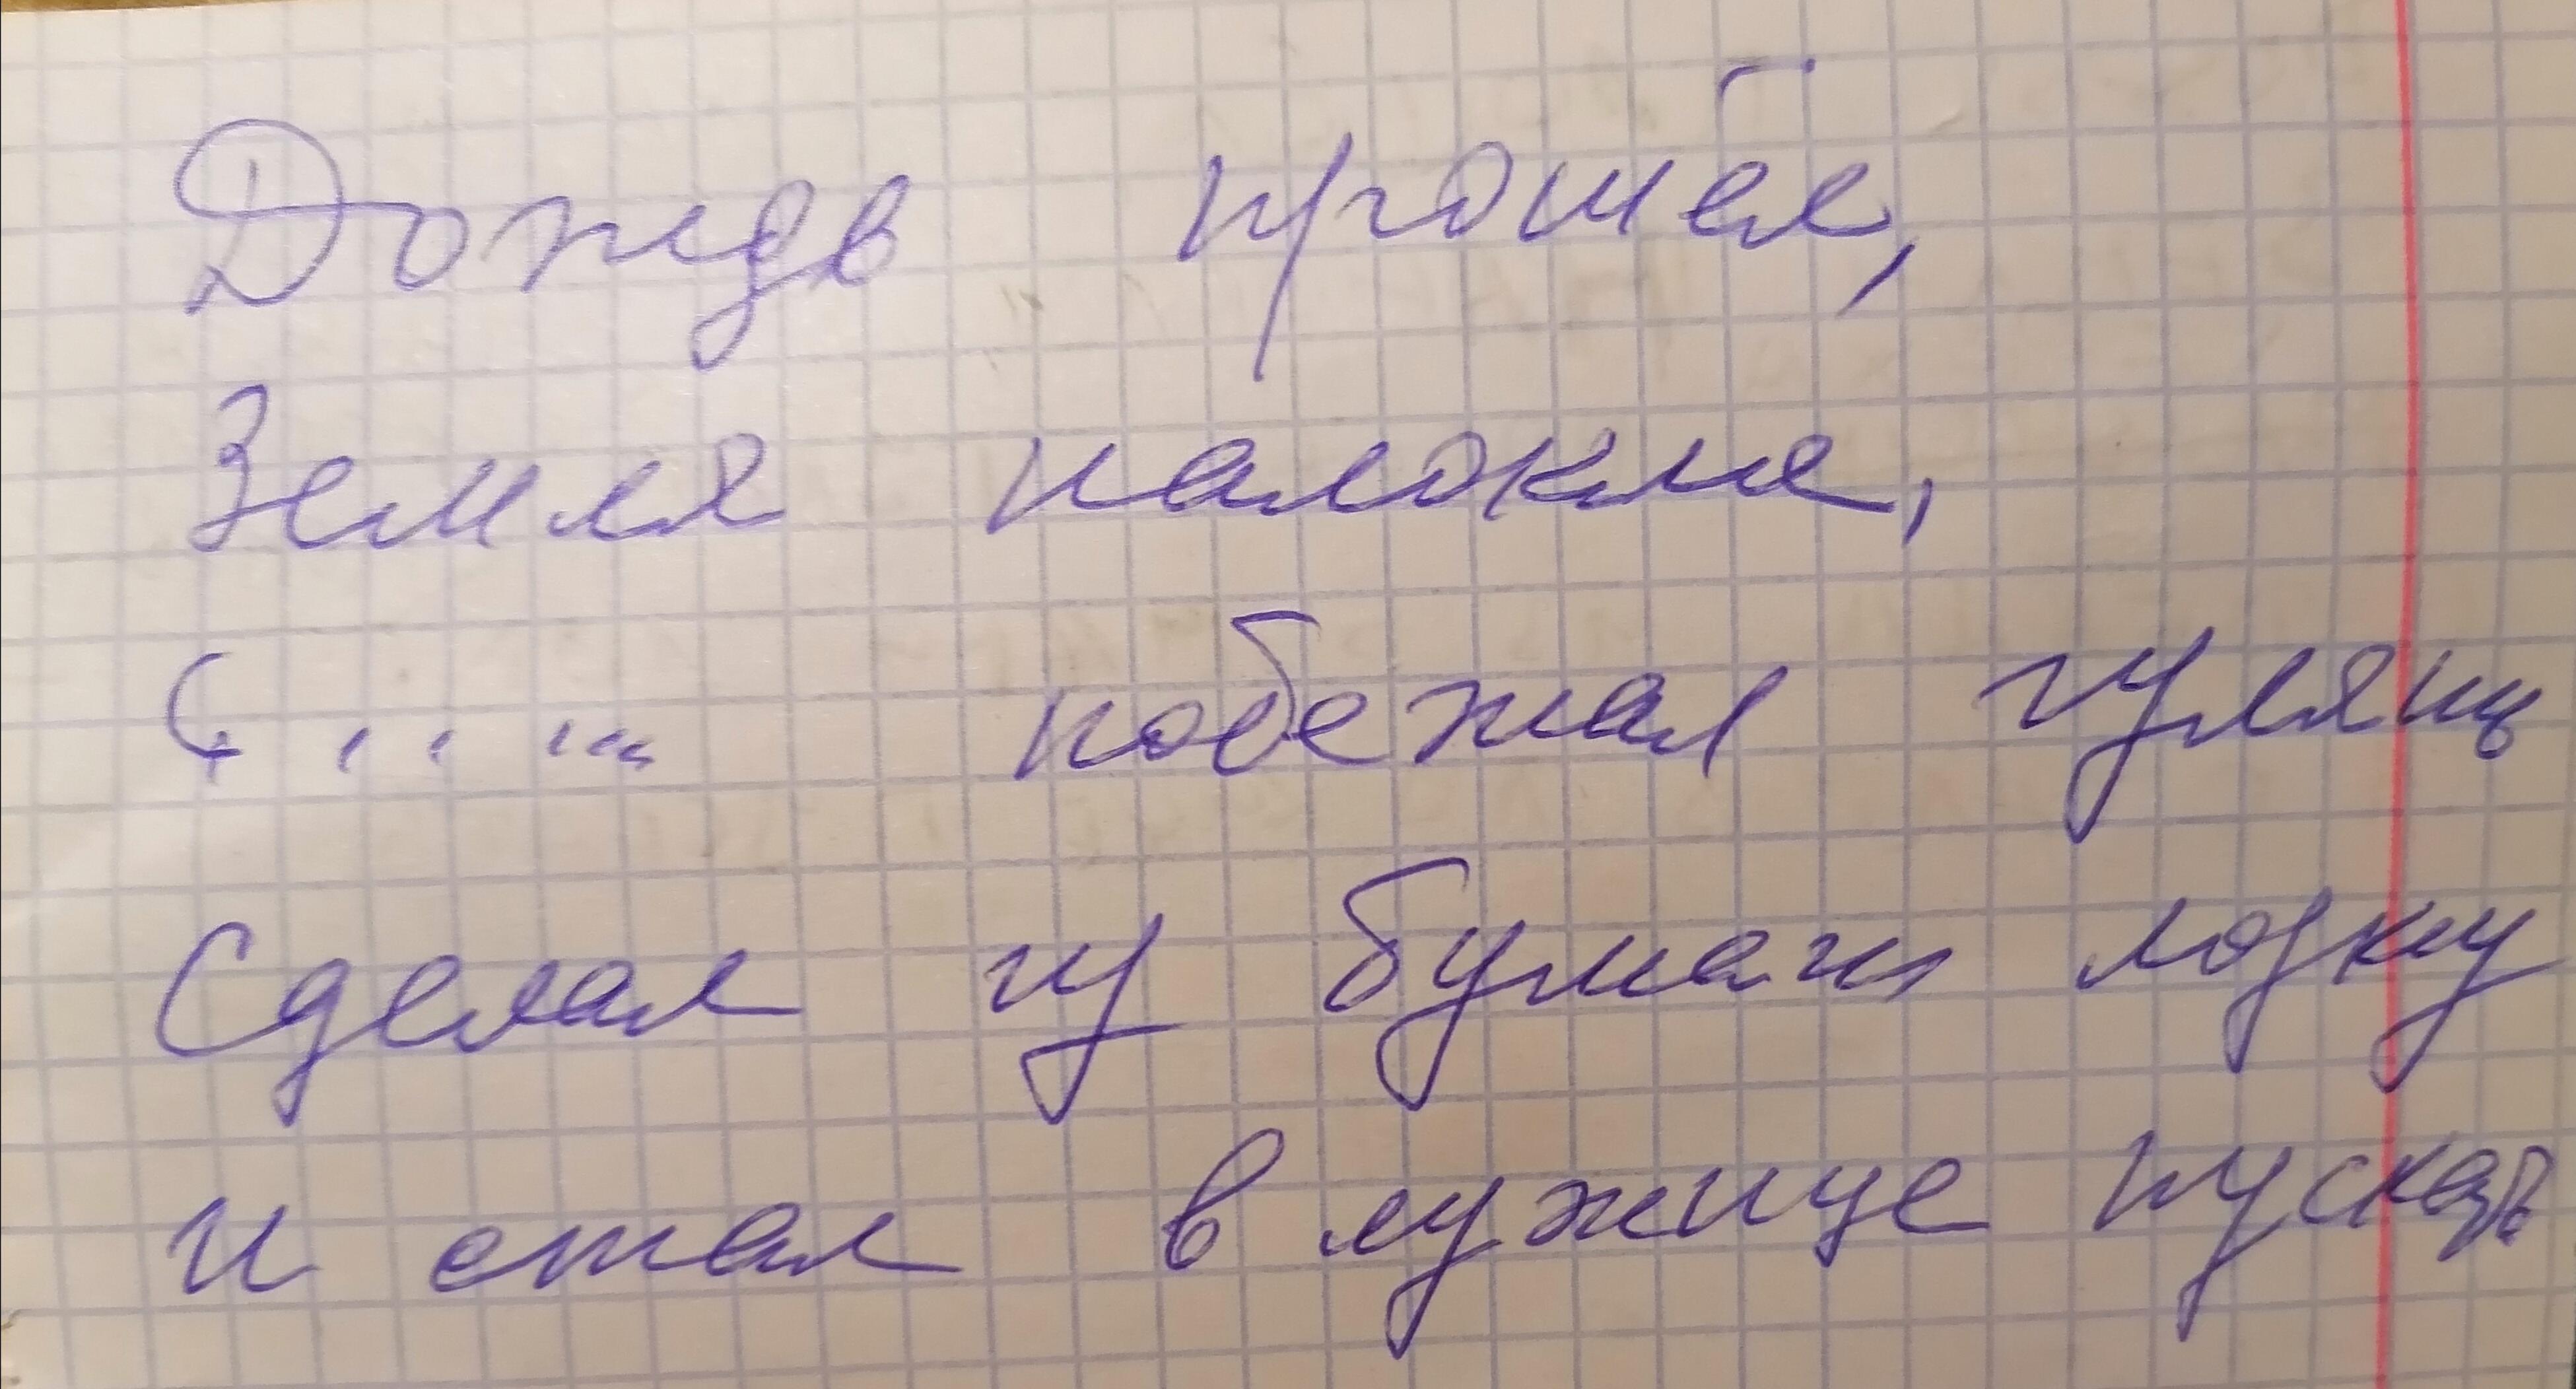 Дождь прошёл,
Земля намокла,
С..... побежал гулять
Сделал из бумаги лодку
и стал в лужице пускать